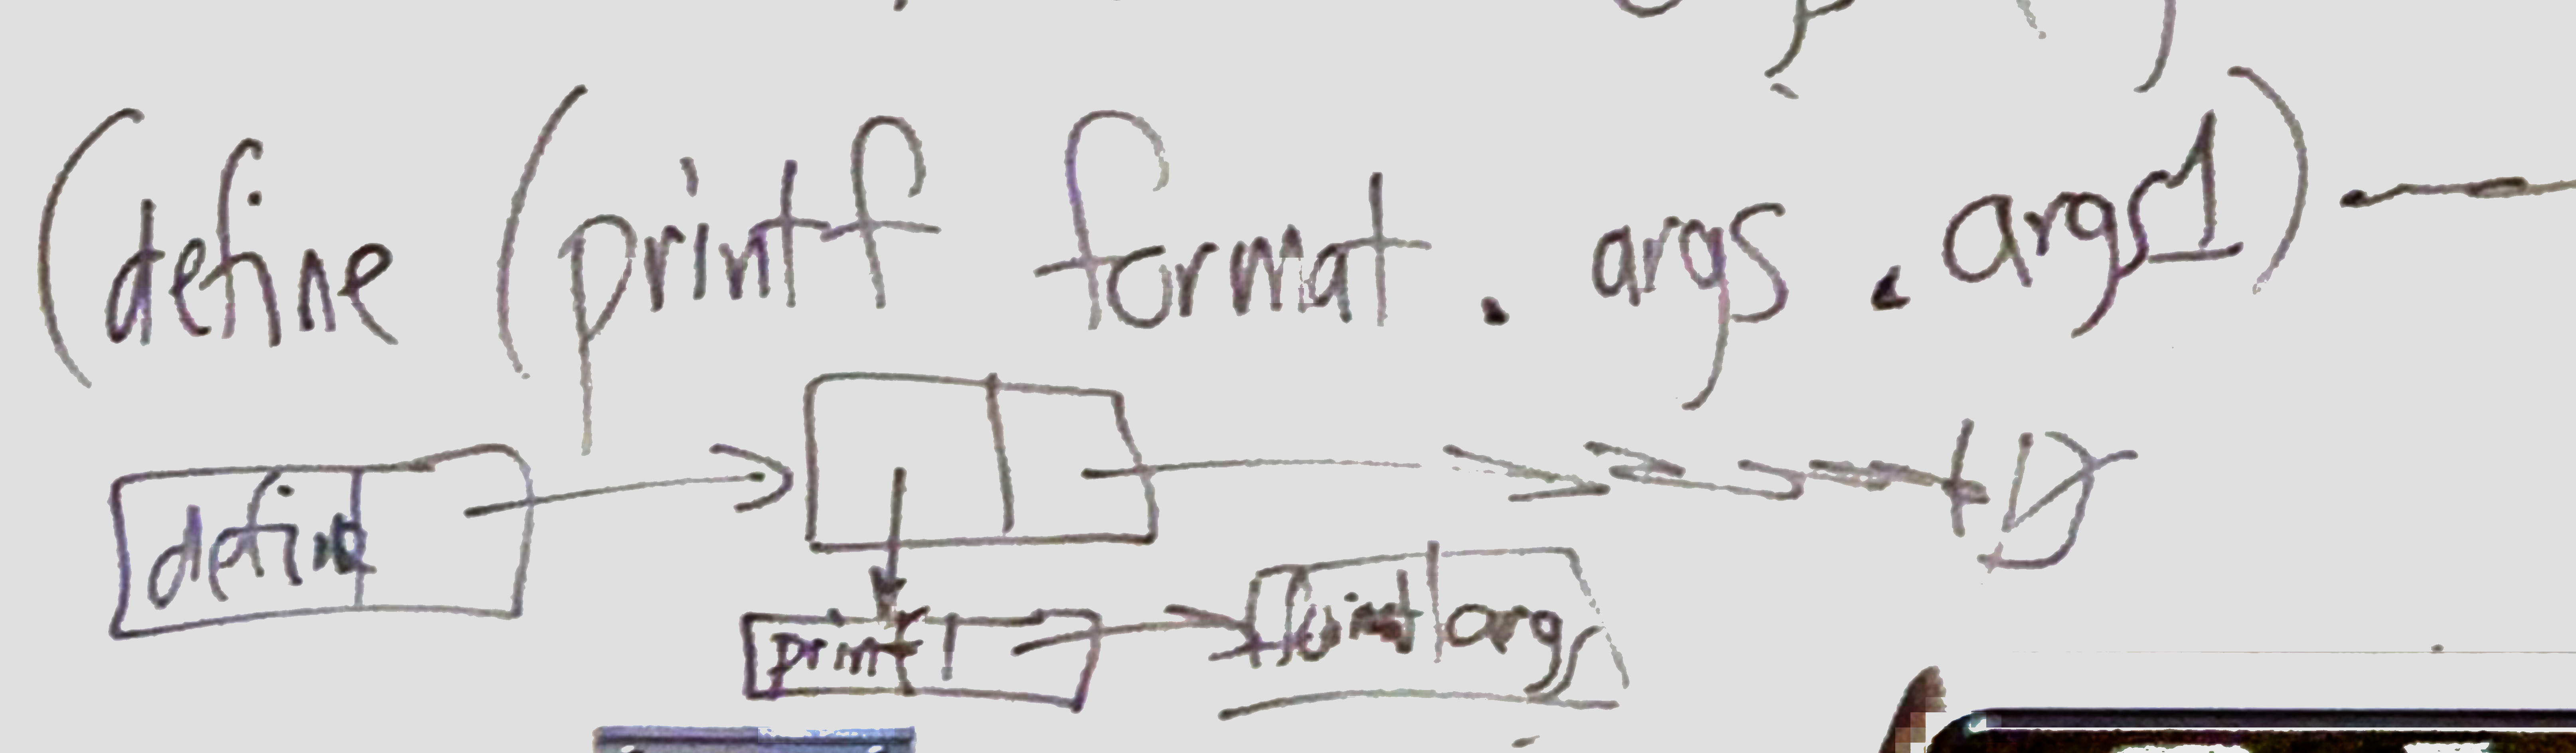 (define (printf format . args . args1)
define
printf args